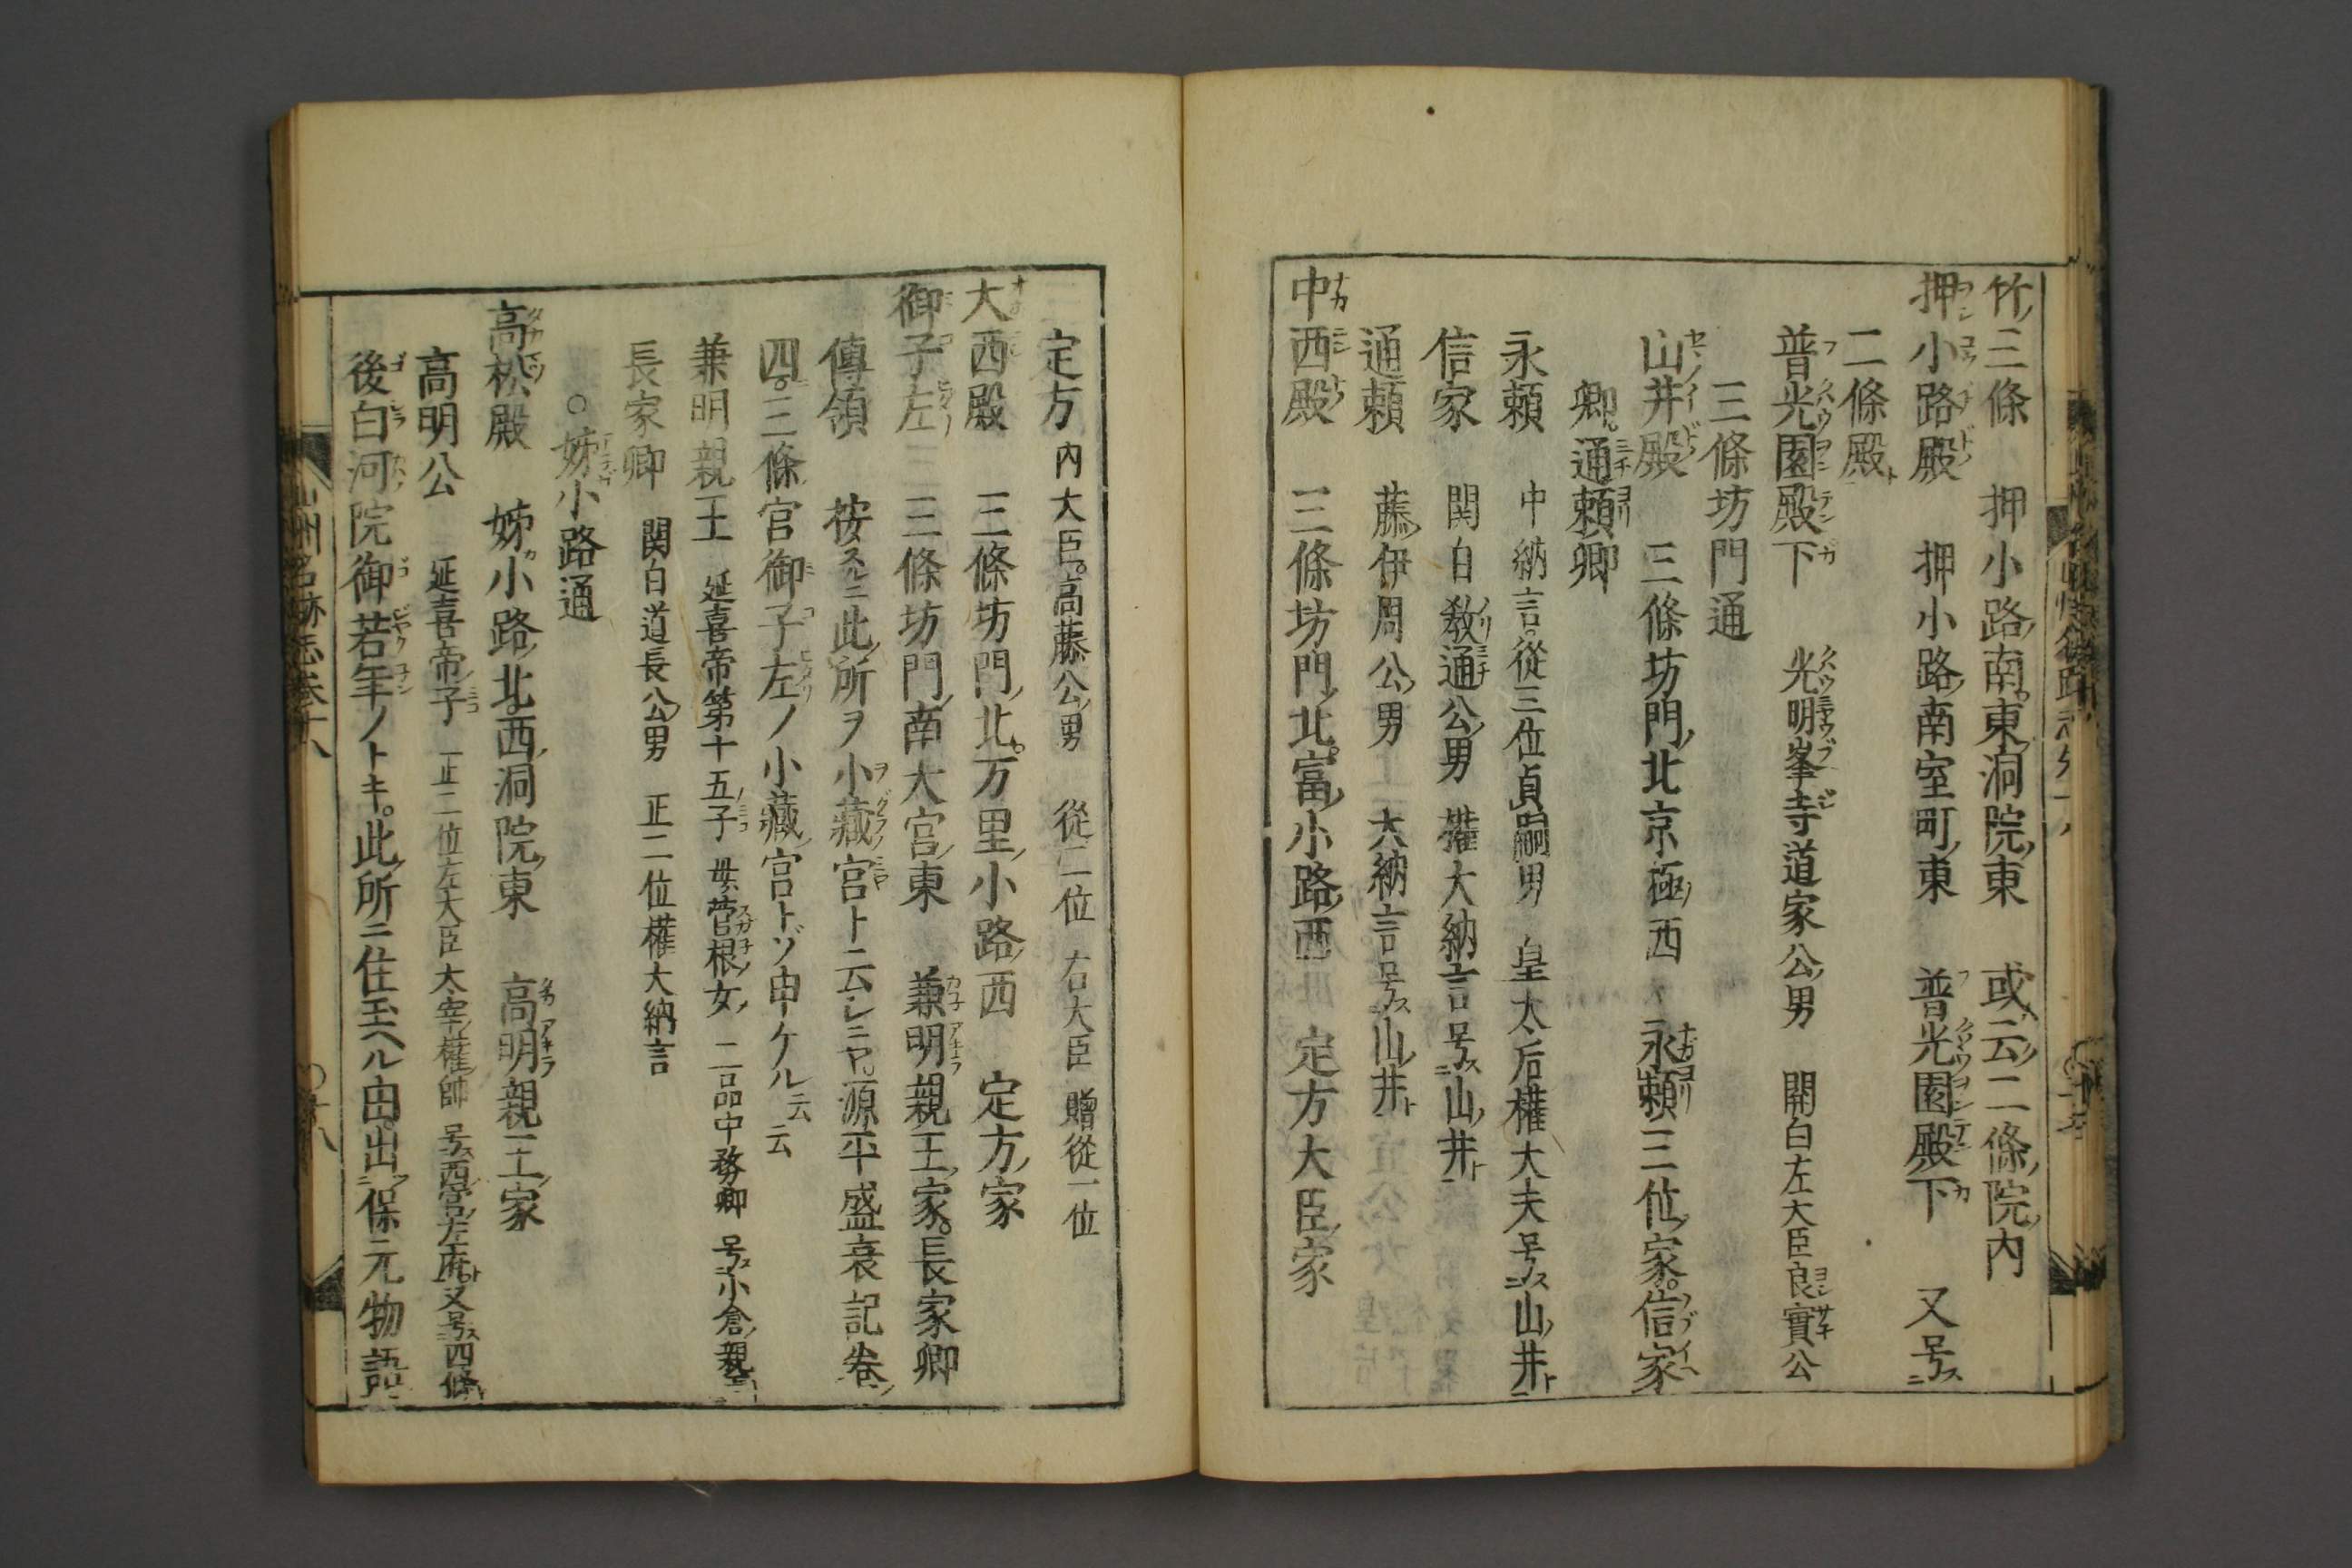 竹三條　押小路南。東洞院東　或云二條院内
押小路殿　押小路南室町東　普光園殿下　又号ス
二條殿ト
普光園殿下　光明峯寺道家公男　関白左大臣良實公
三條坊門通
山井殿　三條坊門北京極西　永頼三位家。信家
卿。通頼卿
永頼　中納言。從三位貞嗣男　皇太后權大夫号ス山井ト
信家　関白教通公男　權大納言号ス山井ト
通頼　藤伊周公男　大納言号ス山井ト
中西殿　三條坊門北。富小路西　定方大臣家
定方　内大臣。高藤公男　從二位　右大臣　贈從一位
大西殿　三條坊門北。万里小路西　定方家
御子左　三條坊門南大宮東　兼明親王家。長家卿
傳領　按スルニ此所ヲ小藏宮ト云シニヤ。源平盛衰記卷
四。三條宮御子左ノ小藏宮トゾ申ケル云云
兼明親王　延喜帝第十五子　母菅根女　二品中務卿　号ス小倉親王
長家卿　関白道長公男　正二位權大納言
○姊小路通
高松殿　姊小路北。西洞院東　高明親王家
高明公　延喜帝子　正二位左大臣　太宰權帥　号ス西宮左府ト又号ス四條
後白河院御若年ノトキ。此所ニ住玉ヘル由。出保元物語
山州名跡志卷十八　○十八